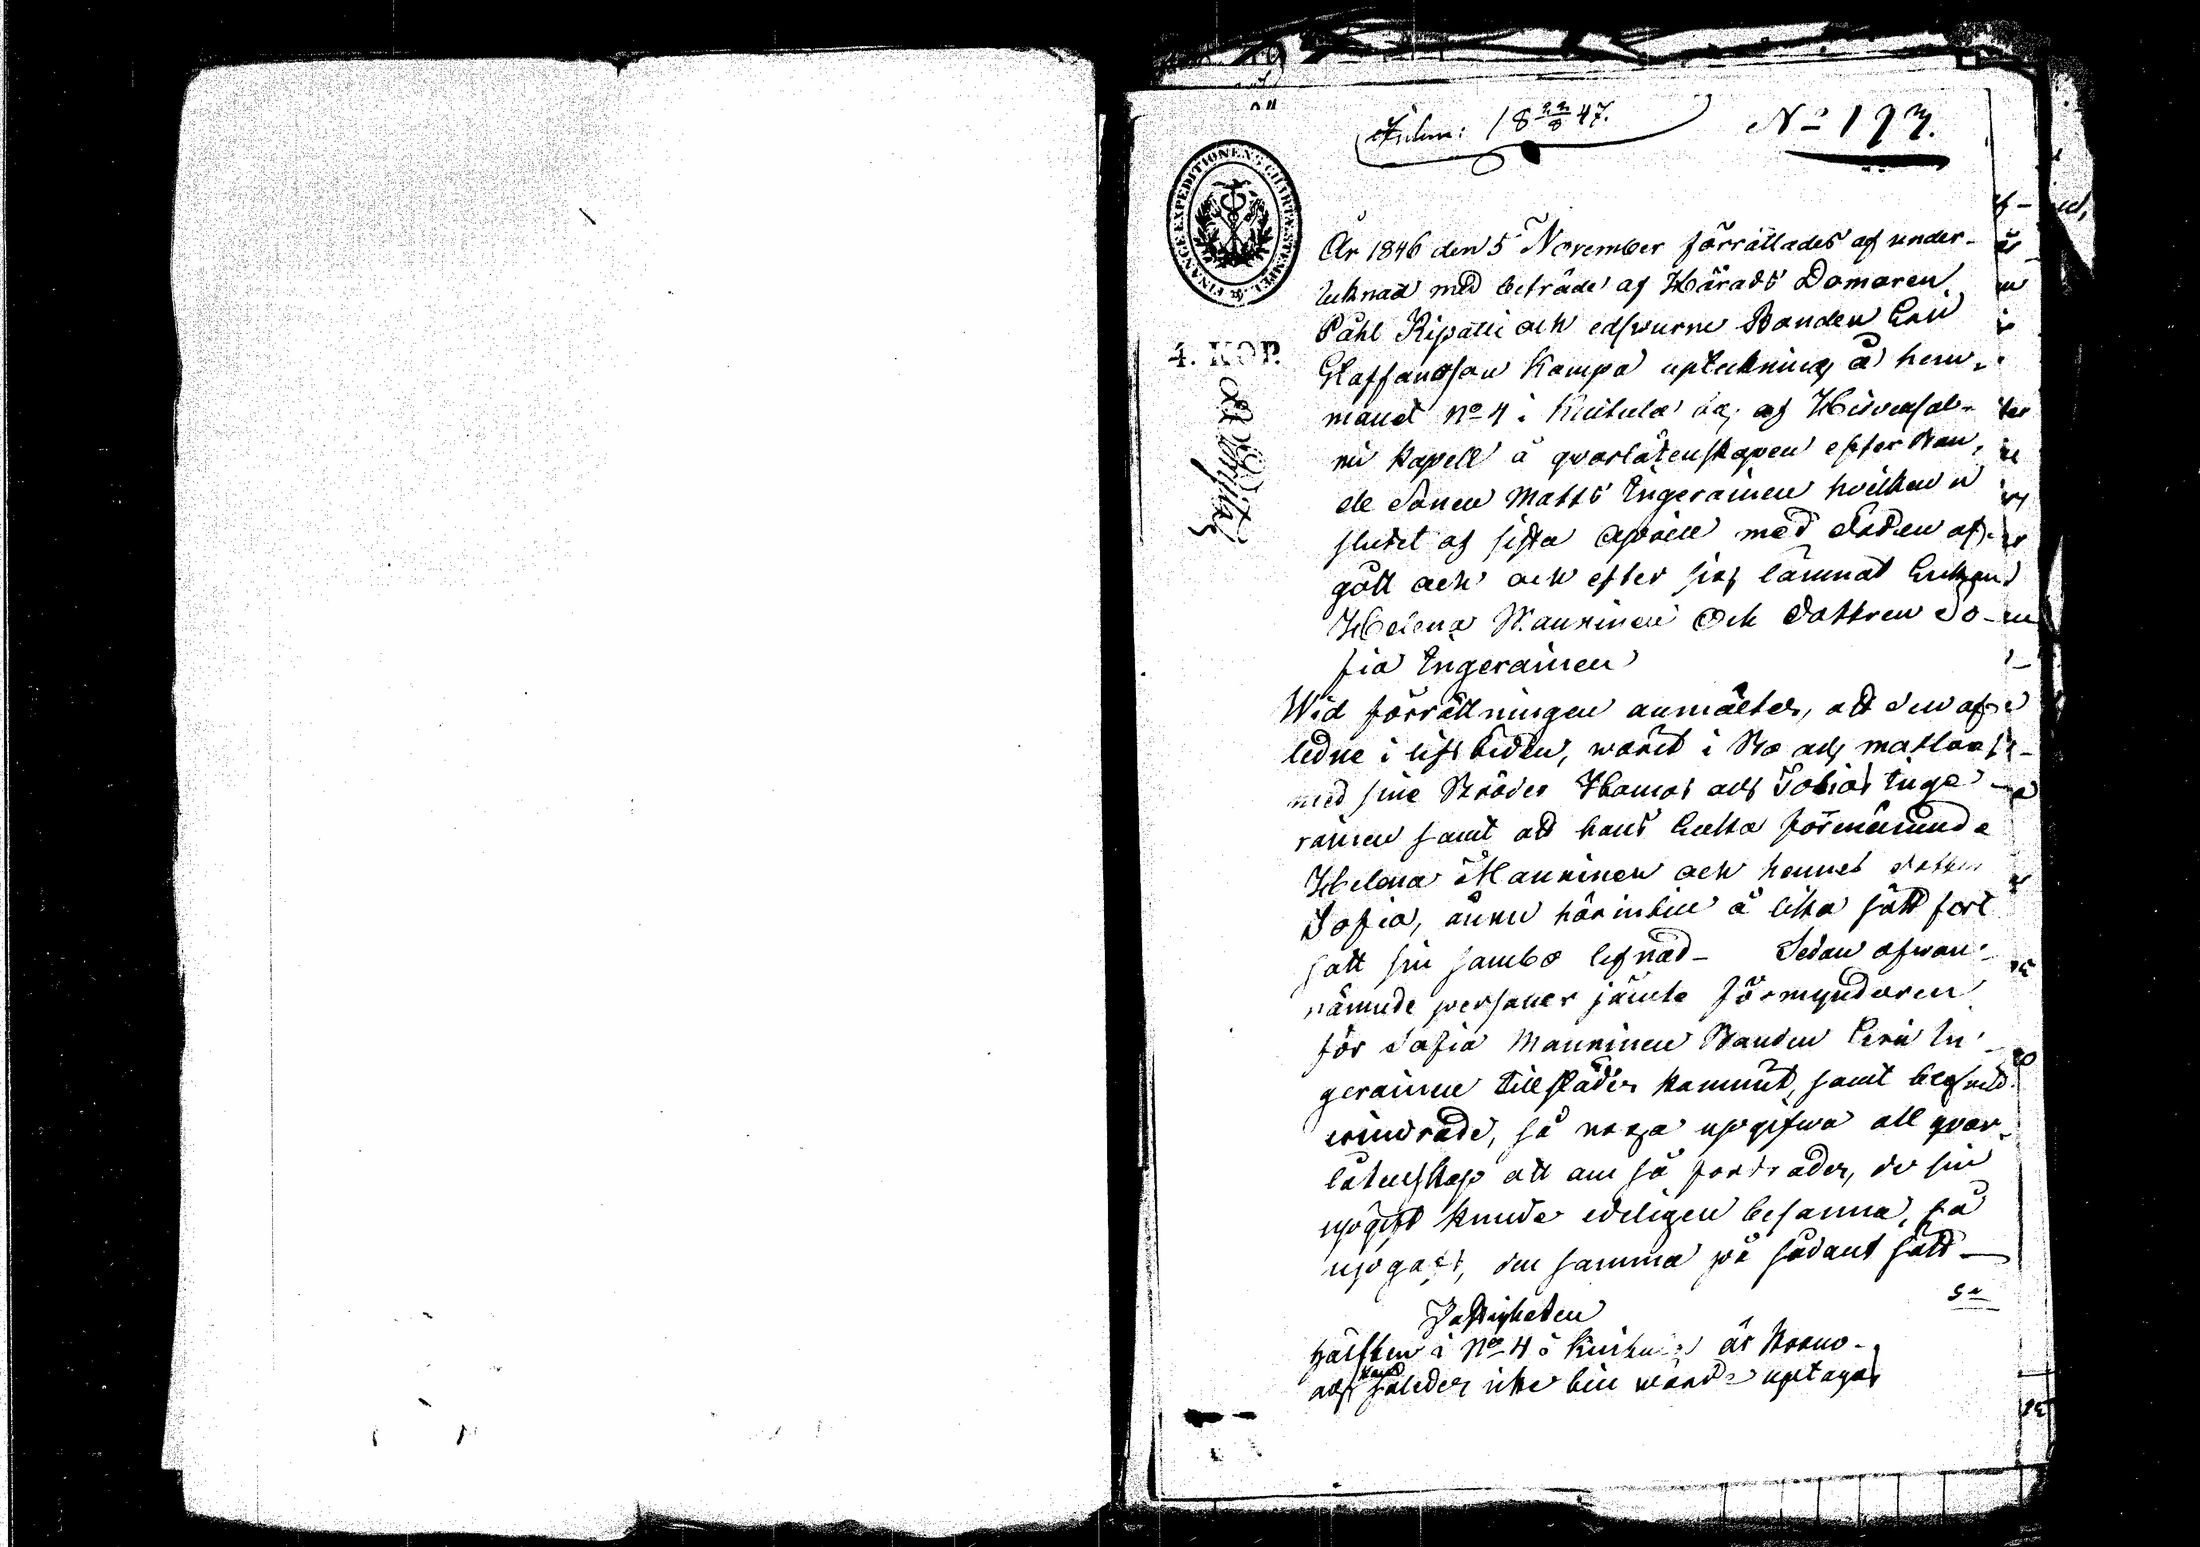 Inlem: 18 22/8 47.
No 193.
FINANCE EXPEDITIONENS CHARTÆ STEMPEL
4. KOP.
År 1846 den 5 November förrättades af under-
teknad med biträde af Härads Domaren
Påhl Ripatti och edswurne Bonden Eric
Staffansson Kampa upteckning å hem-
manet No 4 i by af Hirvensal-
mi Kapell å qvarlåtenskapen efter Bon-
de Sonen Matts Ingerainen hvilken i
slutet af sista April med döden af-
gått och och efter sig lämnat Enkan
Helena Manninen Och Dottren So-
fia Ingerainen
Wid förrättningen anmältes, att den af-
ledne i lifstiden, warit i Bo och matlag
med sine Bröder Thomas och Tobias Inge-
rainen samt att hans Enka förmenunde
Helena Manninen och hennes dotter
Sofia, ännu härintill å lika sätt fort
satt sin sambo lefnad - Sedan ofwan-
nämnde personer jämte förmyndaren
för Sofia Manninen Bonden Eric In-
gerainen tillstädes kommit, samt blefwit
erindrade, så noga uppgifwa all qvar-
låtenskap att om så fordrades, de sin
uppgift kunde edeligen besanna, så
uppgafs, den samma på sådant sätt -
Fastigheten
Hälften i No 4 i är Krono-
och således icke till wärde uptagas